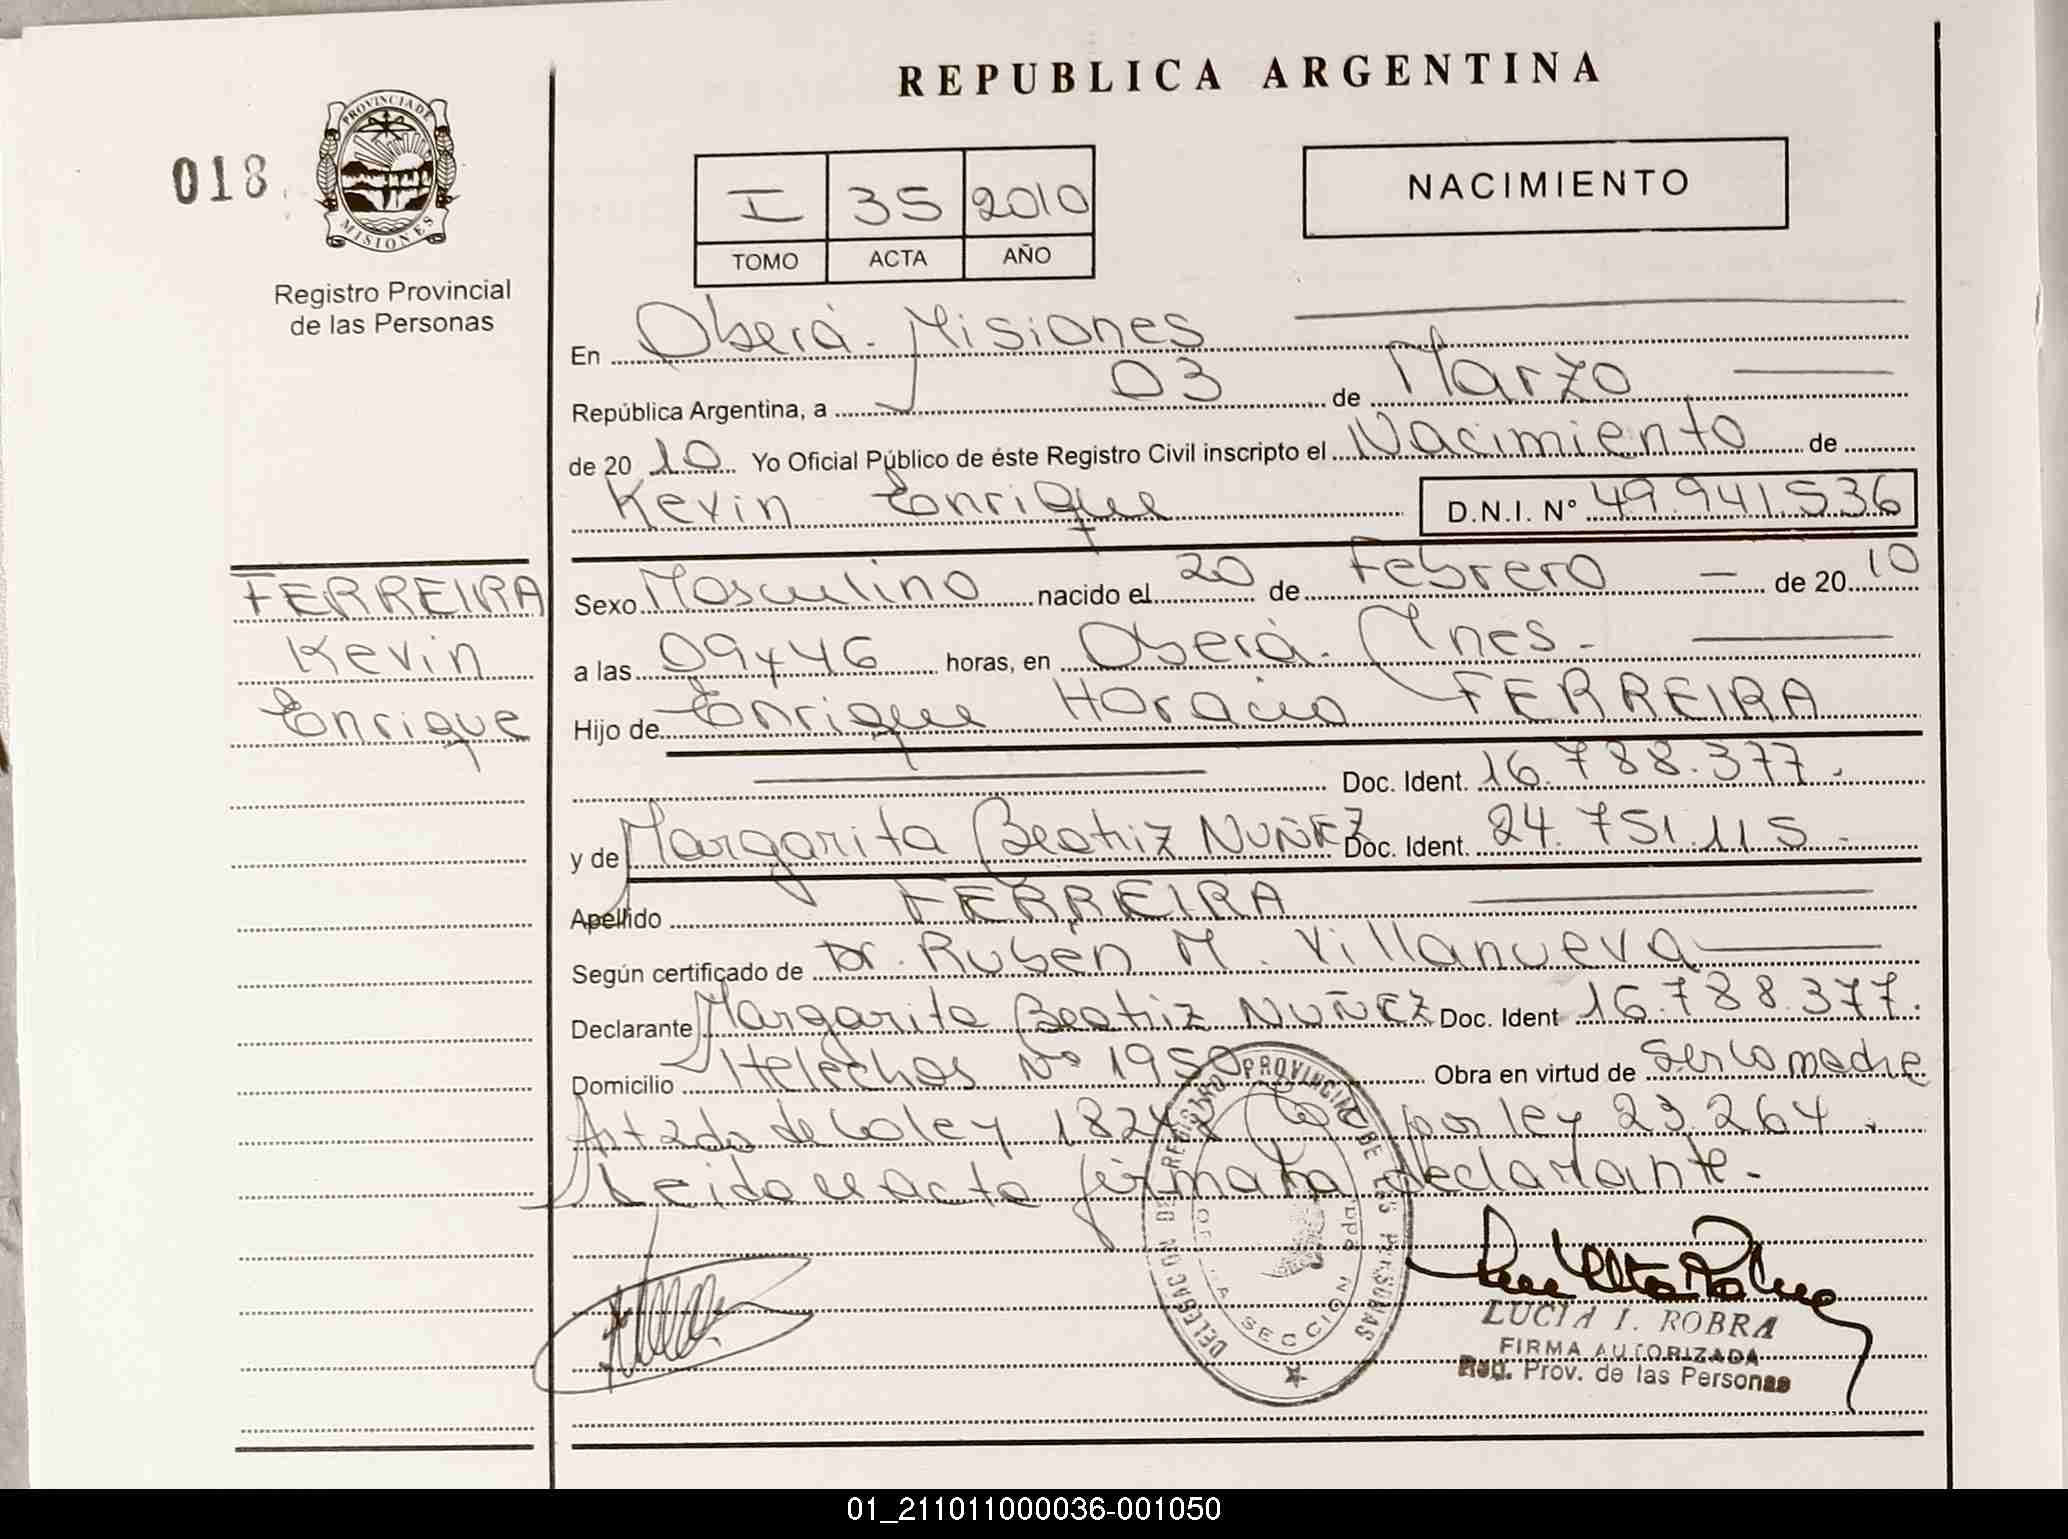 REPUBLICA ARGENTINA
018
PROVINCIA DE MISIONES
Registro Provincial
de las Personas
I 35 2010
TOMO ACTA AÑO
NACIMIENTO
En Oberá. Misiones
República Argentina, a 03 de Marzo
de 20 10 Yo Oficial Público de éste Registro Civil inscripto el Nacimiento de
Kevin Enrique D.N.I. Nº 49.941.536
FERREIRA
Kevin
Enrique
Sexo Masculino nacido el 20 de Febrero de 20 10
a las 09 y 46 horas, en Oberá. Mnes.
Hijo de Enrique Horacio FERREIRA
Doc. Ident. 16.788.377.
y de Margarita Beatriz NUÑEZ Doc. Ident. 24.751.115.
Apellido FERREIRA
Según certificado de Dr. Rubén M. Villanueva
Declarante Margarita Beatriz NUÑEZ Doc. Ident 16.788.377.
Domicilio Helechos Nº 1950 Obra en virtud de ser la madre
Art 2do de la ley 182 por ley 23.264.
Leida el acta firma la declarante.
DELEGACION DE REGISTRO PROVINCIAL DE LAS PERSONAS
SECCION
LUCIA I. ROBRA
FIRMA AUTORIZADA
Reg. Prov. de las Personas
01_211011000036-001050